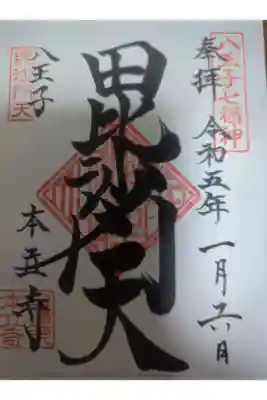 八王子七福神
奉拝 令和五年 一月 日
毘沙門天
毘沙門天
八王子 本立寺